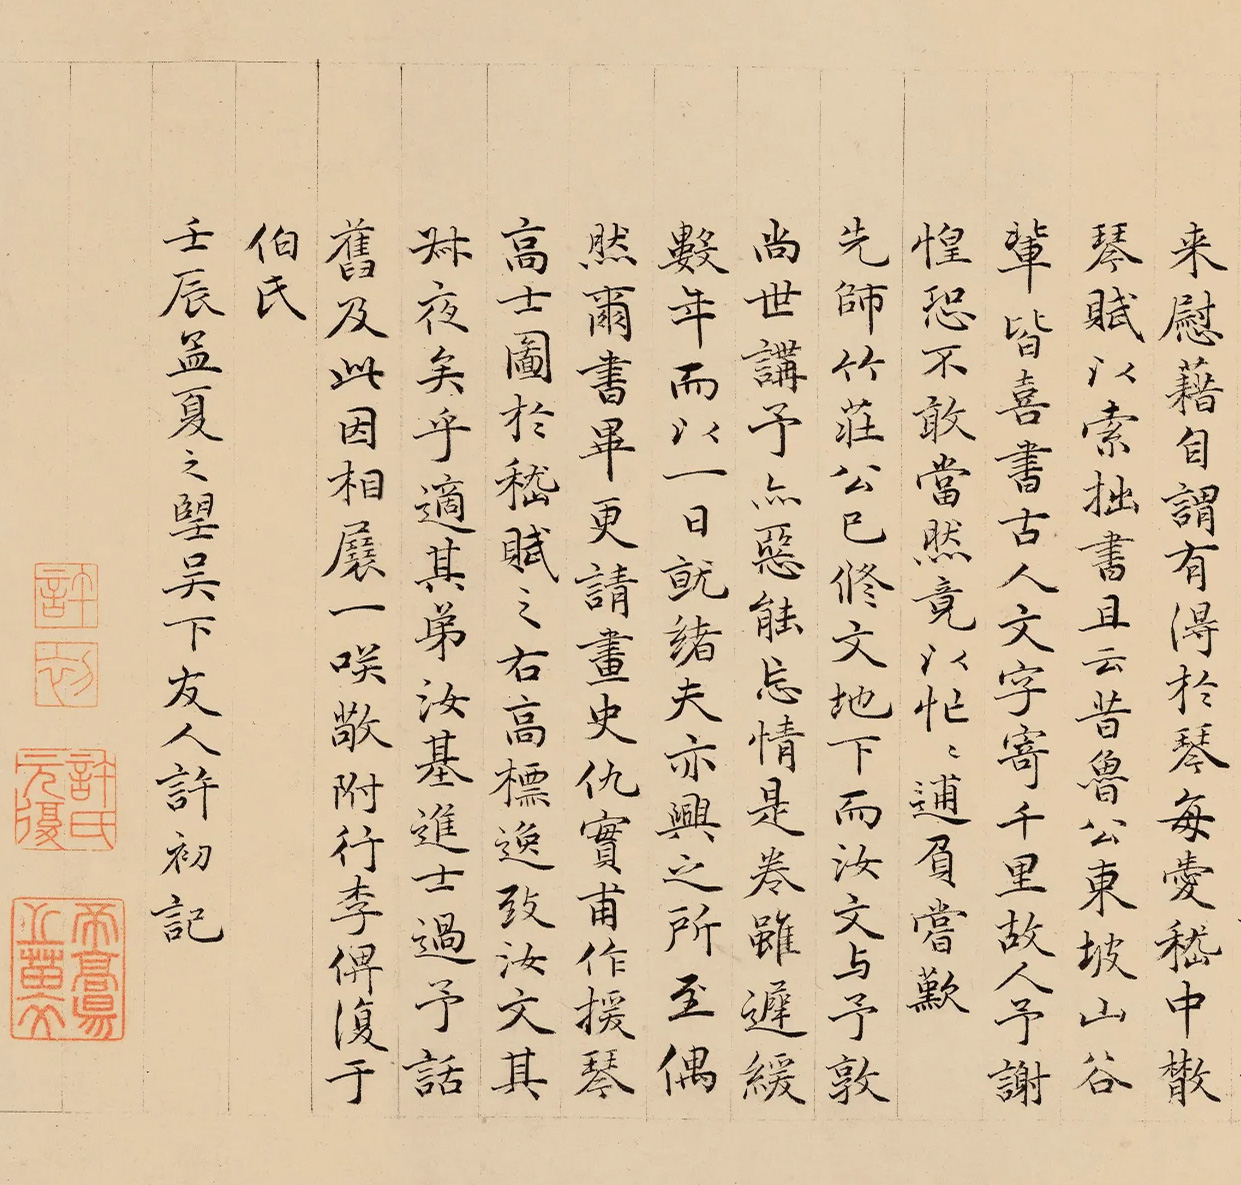 来慰藉自謂有得於琴每愛嵇中散
琴賦以索拙書且云昔魯公東坡山谷
輩皆喜書古人文字寄千里故人予謝
惶恐不敢當然竟以忙〻逋負嘗歎
先師竹莊公已修文地下而汝文与予敦
尚世講予亦惡能忘情是卷雖遲緩
數年而以一日就緒夫亦興之所至偶
然爾書畢更請畫史仇實甫作援琴
高士圖於嵇賦之右高標逸致汝文其
叔夜矣乎適其弟汝基進士過予話
舊及此因相展一咲敬附行李俾復于
伯氏
壬辰孟夏之望吳下友人許初記
許
初
許氏元復